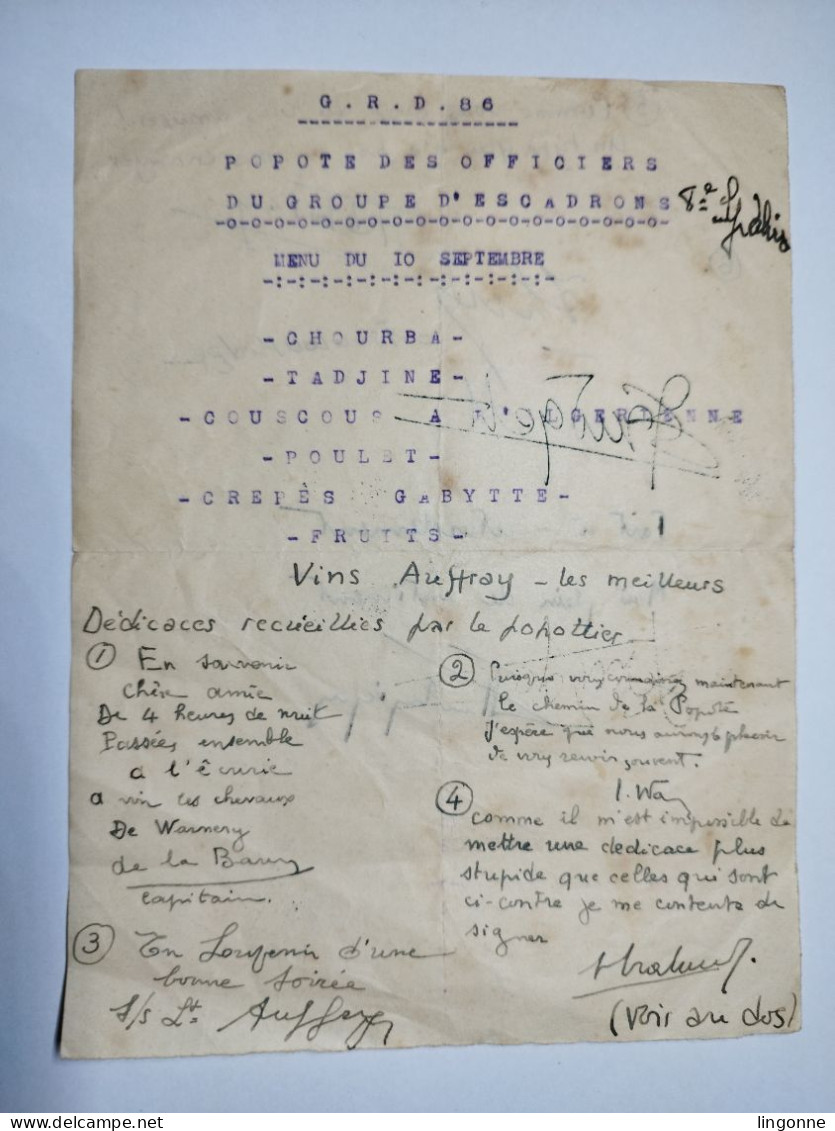 G.R.D.86
POPOTE DES OFFICIERS
DU GROUPE D'ESCADRONS 8=e Spahis
MENU DU IO SEPTEMBRE
-CHOURBA-
-TADJINE-
-COUSCOUS A L'LGERIENNE
-POULET-
-CREPÈS GABYTTE-
-FRUITS-
Vins Auffray - les meilleurs
Dédicaces recueillies par le popottier
① En souvenir
chère amie
De 4 heures de nuit
Passées ensemble
a l'êcurie
a voir les chevaux
De Warnery
de la
capitain.
② Puisque vous connaissez maintenant
le chemin de la Popote
J'espère que nous aurons plaisir
de vous revoir souvent.
③ En Souvenir d'une
bonne soirée
S/s Lt= Auffray
④ comme il m'est impossible de
mettre une dedicace plus
stupide que celles qui sont
ci-contre je me contente de
signer
(voir au dos)
lingonne